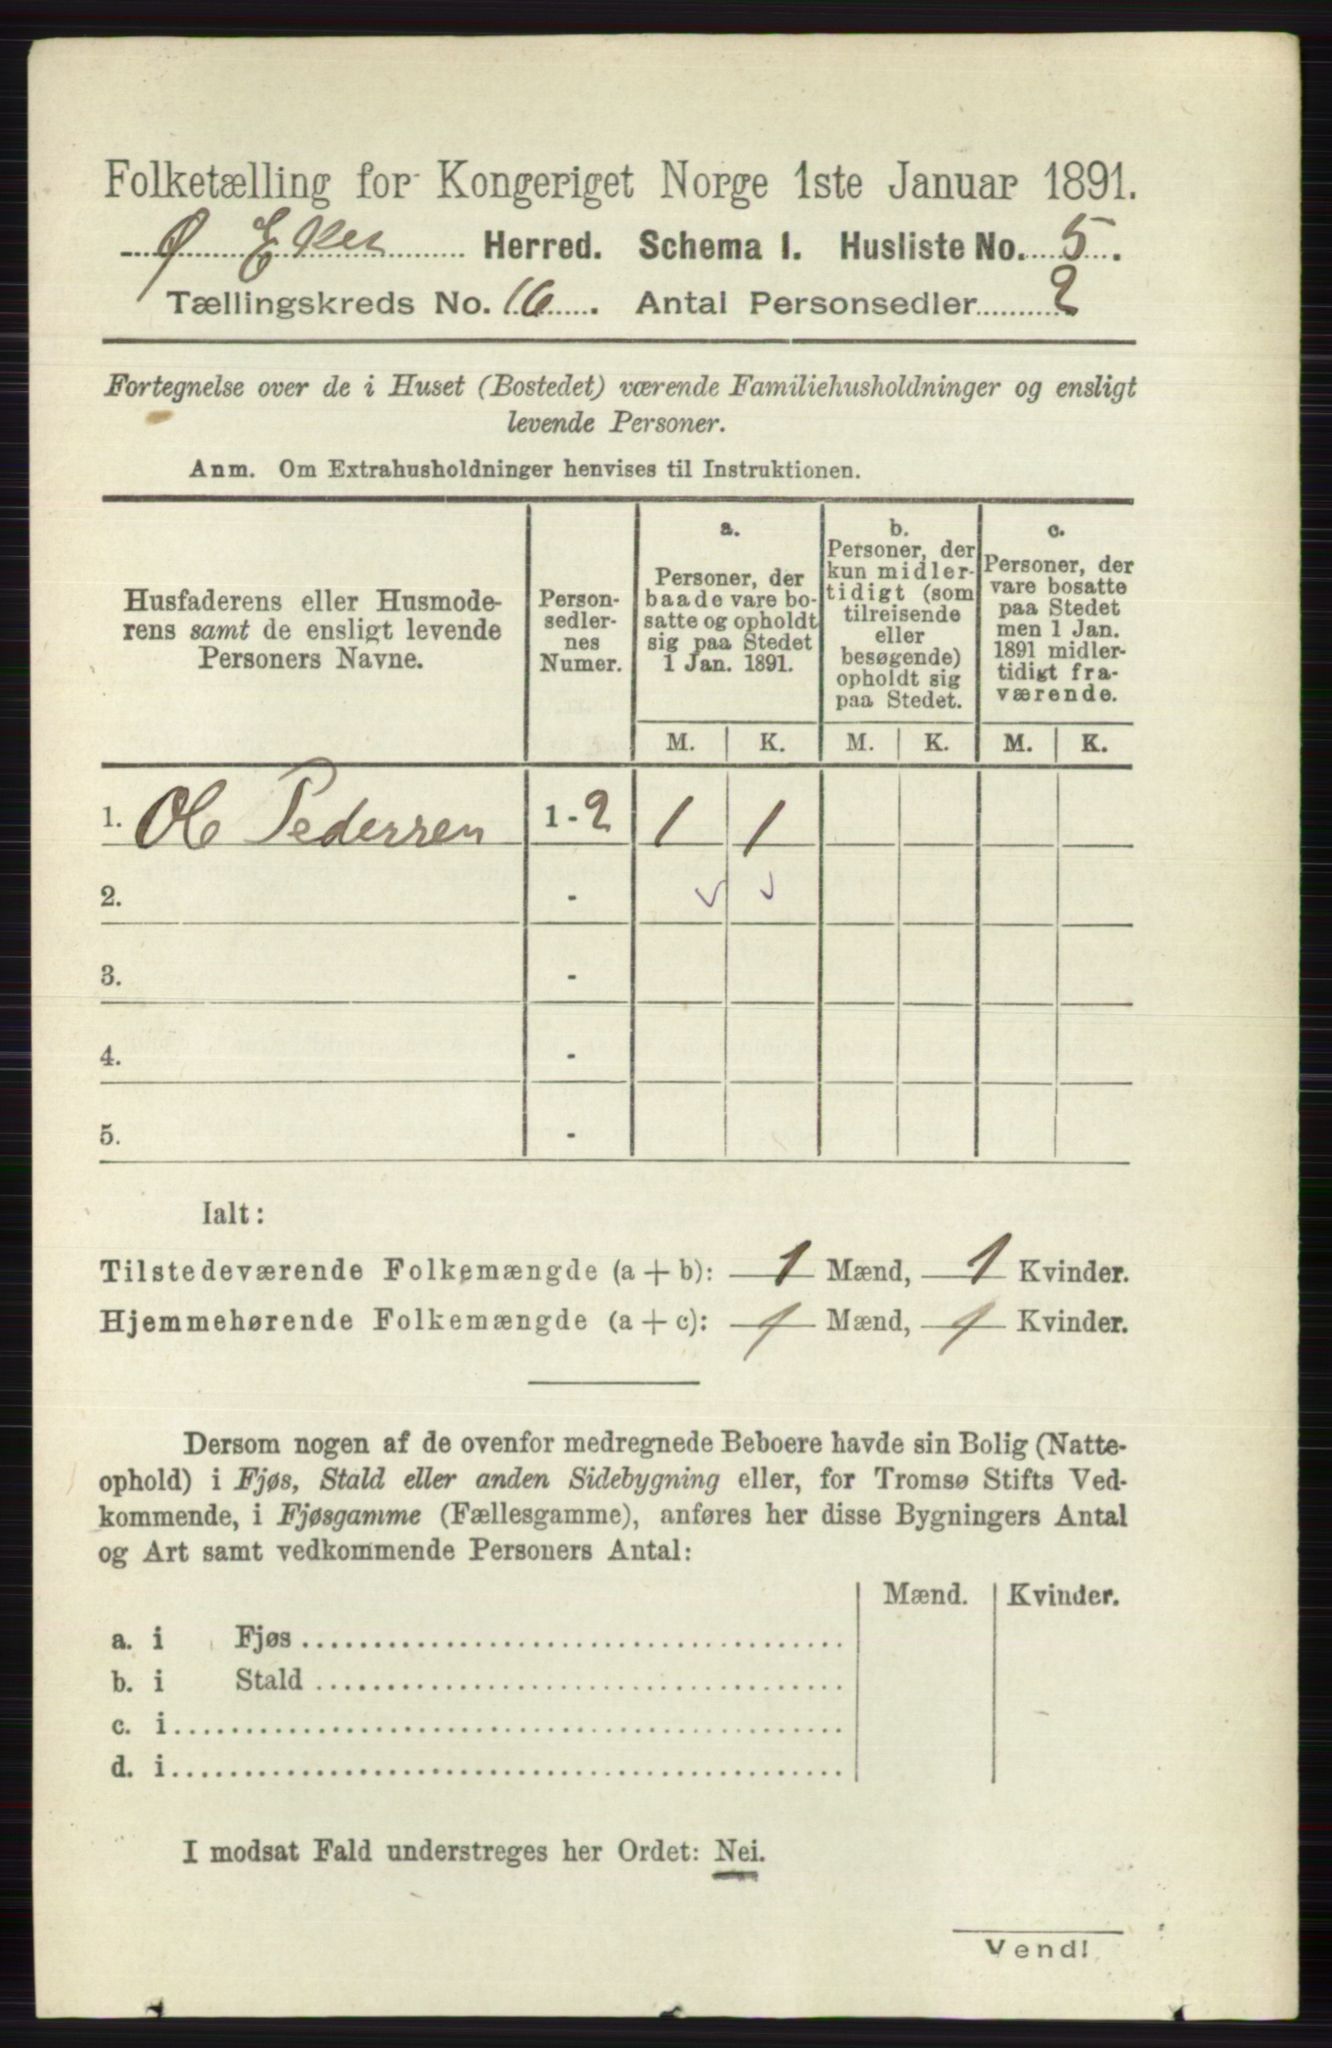 Folketælling for Kongeriget Norge 1ste Januar 1891.
Ø Eker Herred. Schema I. Husliste No. 5.
Tællingskreds No. 16. Antal Personsedler 2
Fortegnelse over de i Huset (Bostedet) værende Familiehusholdninger og ensligt
levende Personer.
Anm. Om Extrahusholdninger henvises til Instruktionen.
Husfaderens eller Husmode-
rens samt de ensligt levende
Personers Navne.
Person-
sedler-
nes
Numer.
a.
Personer, der
baade vare bo-
satte og opholdt
sig paa Stedet
1 Jan. 1891.
b.
Personer, der
kun midler-
tidigt (som
tilreisende
eller
besøgende)
opholdt sig
paa Stedet.
c.
Personer, der
vare bosatte
paa Stedet
men 1 Jan.
1891 midler-
tidigt fra-
værende.
M. K. M. K. M. K.
1. Ole Pedersen 1-2 1 1
2. -
3. -
4. -
5. -
Ialt:
Tilstedeværende Folkemængde (a + b): 1 Mænd, 1 Kvinder.
Hjemmehørende Folkemængde (a + c): 1 Mænd, 1 Kvinder.
Dersom nogen af de ovenfor medregnede Beboere havde sin Bolig (Natte-
ophold) i Fjøs, Stald eller anden Sidebygning eller, for Tromsø Stifts Ved-
kommende, i Fjøsgamme (Fællesgamme), anføres her disse Bygningers Antal
og Art samt vedkommende Personers Antal:
Mænd. Kvinder.
a. i Fjøs
b. i Stald
c. i
d. i
I modsat Fald understreges her Ordet: Nei.
Vend!